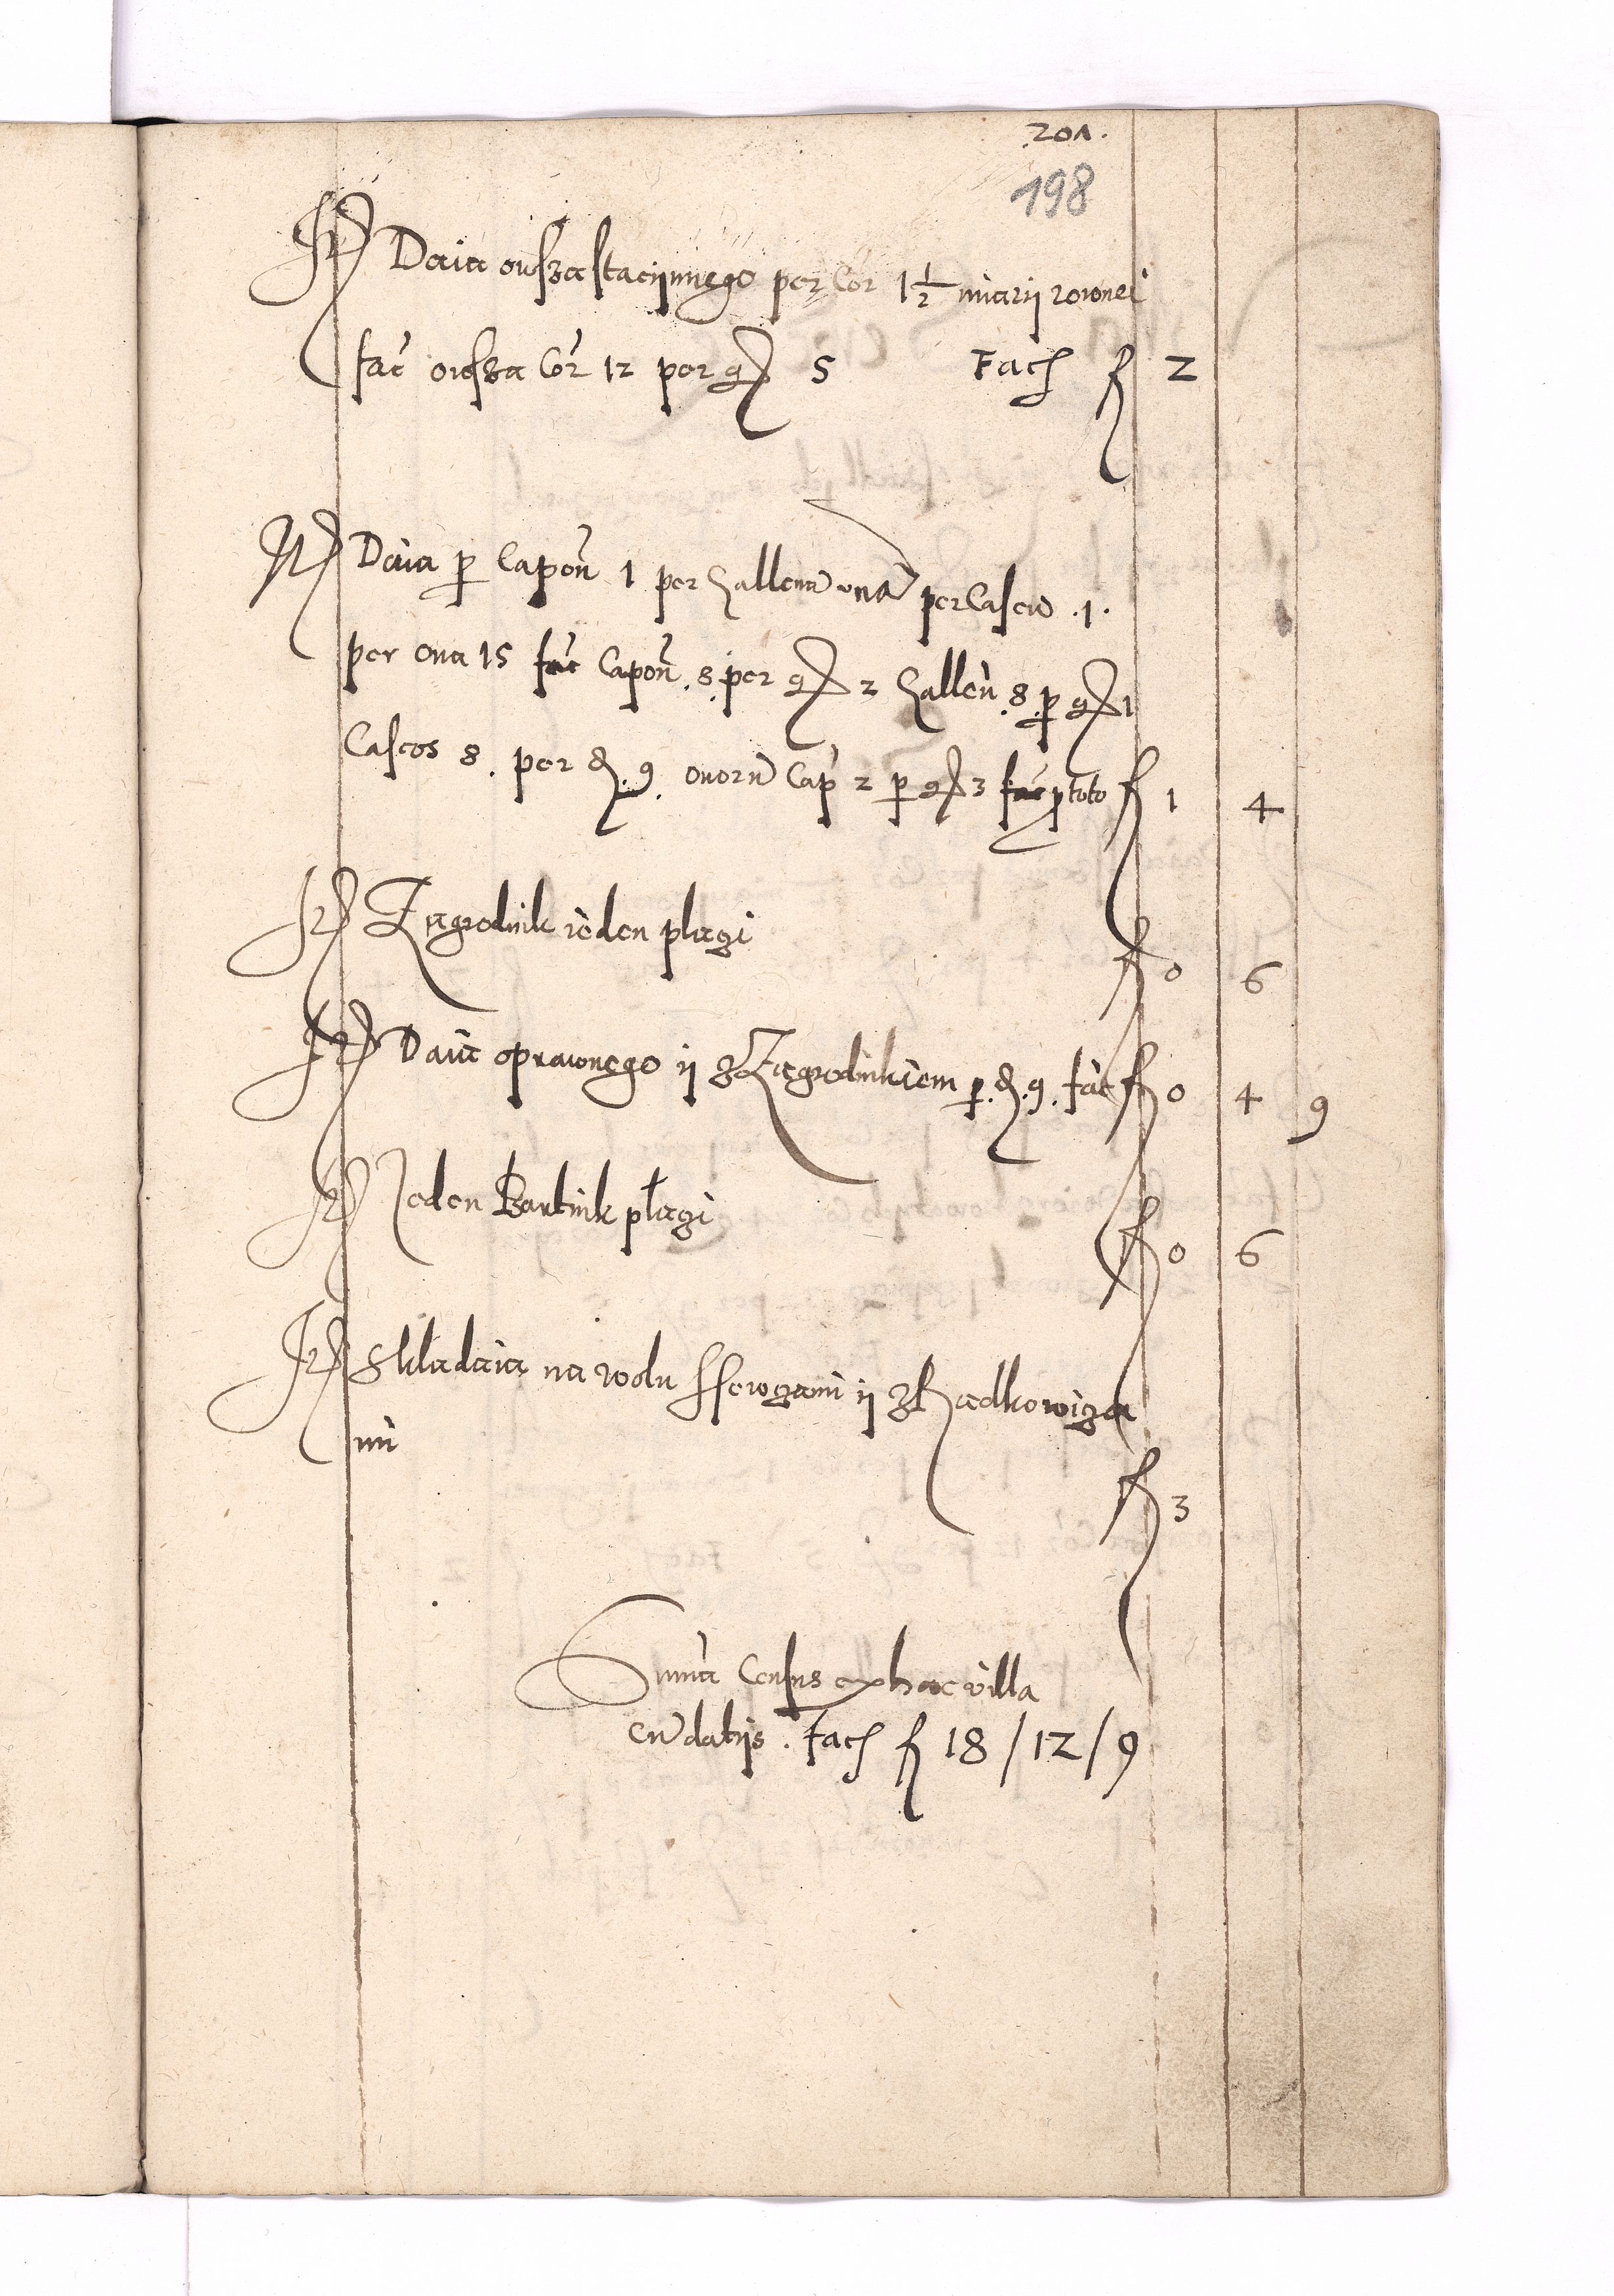 201.
198
It Daia owsza staciinnego per Cor 1 1/2 miarÿ rownei
fac̃ owsza Cor 12 per gr 5 Fac f 2
It Daia p Capon̄ 1 per Gallenā unā per Caseū .1.
per ova 15 fac̃ Capon̄ .8. per gr 2 Gallen .8. p gr 1
Caseos 8. per d. 9. ovorū Cap 2 p gr 3 fac̃ p toto f 1 4
It Zagrodnik ieden placzi f 0 6
It Daia oprawnego ÿ z Zagrodnikiem p. d. 9. fac f 0 4 9
It Jeden Bartnik płaczi f 0 6
It Składaia na wolu ÿ z Radkowicza
mi
f 3
Summa Census ex hac villa
cū datiis . Fac f 18 / 12 / 9